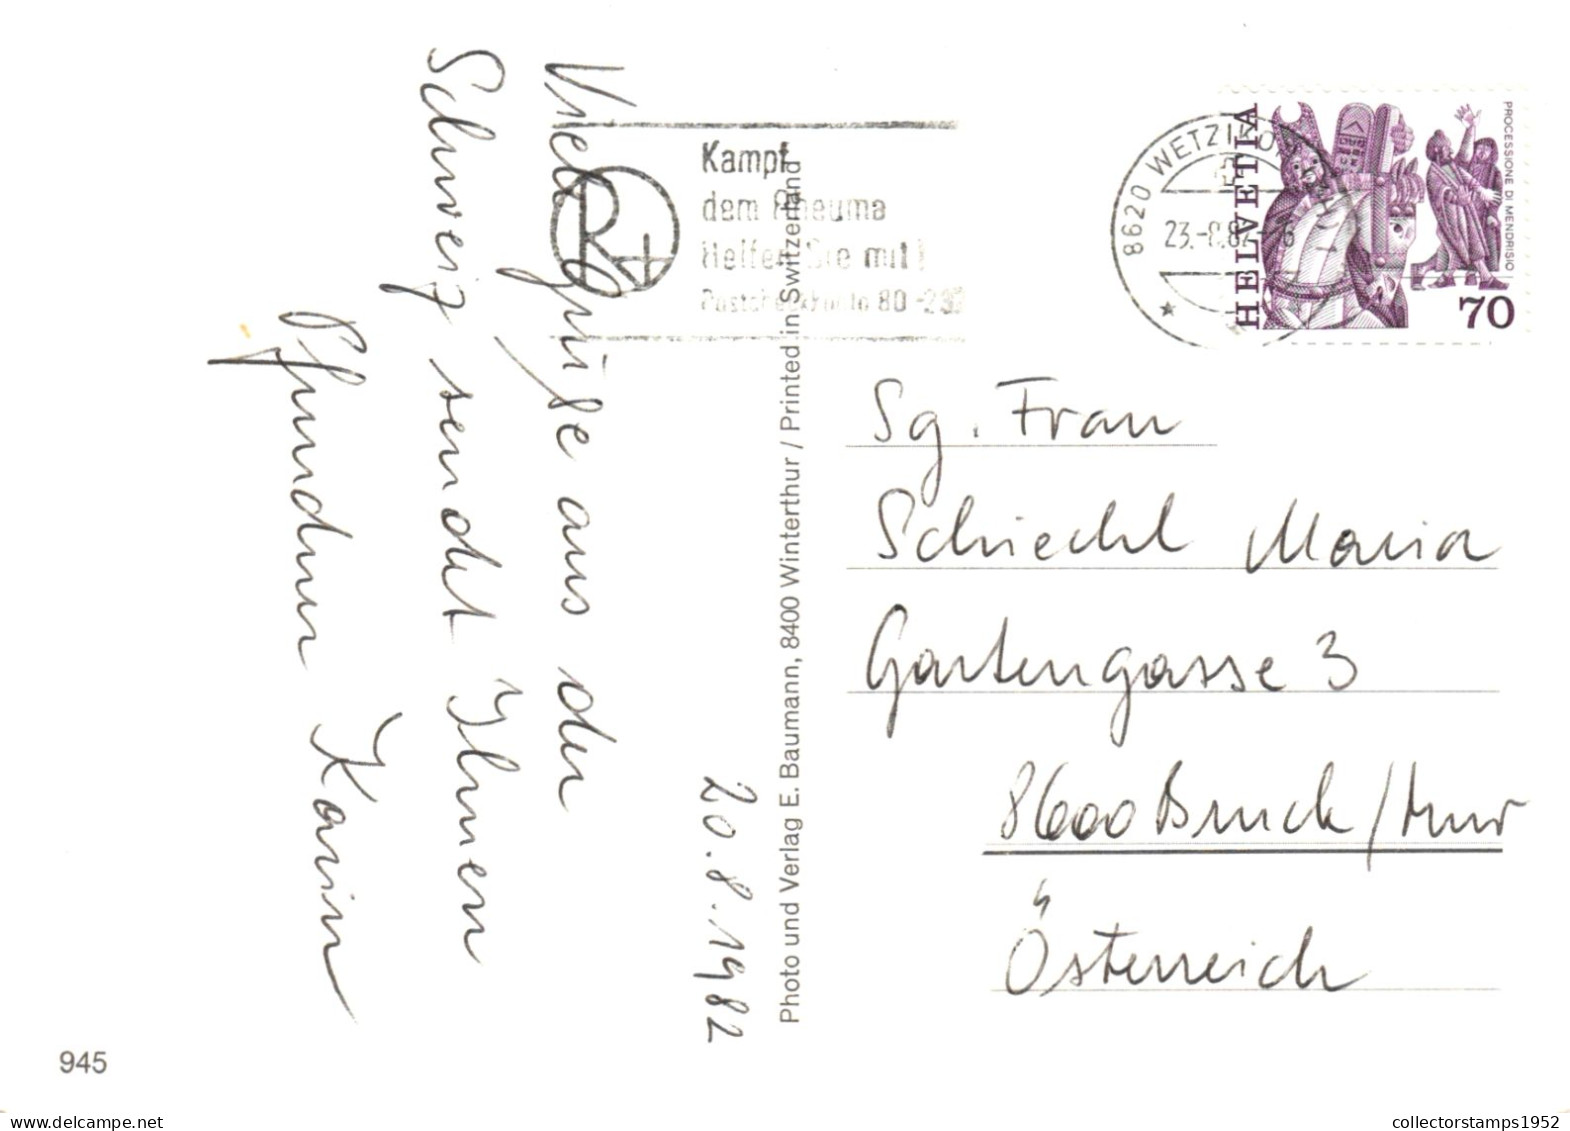 Viele Grüße aus der
Schweiz sendet Ihnen
Pfundner Karin
20.8.1982
Kampf
dem Rheuma
Helfen Sie mit!
Postcheckkonto 80-
R+
8620 WETZIKON
23.-8.82-16
HELVETIA
PROCESSIONE DI MENDRISIO
70
Photo und Verlag E. Baumann, 8400 Winterthur / Printed in Switzerland
Sg. Frau
Schiechl Maria
Gartengasse 3
8600 Bruck/Mur
Österreich
945
collectorstamps1952